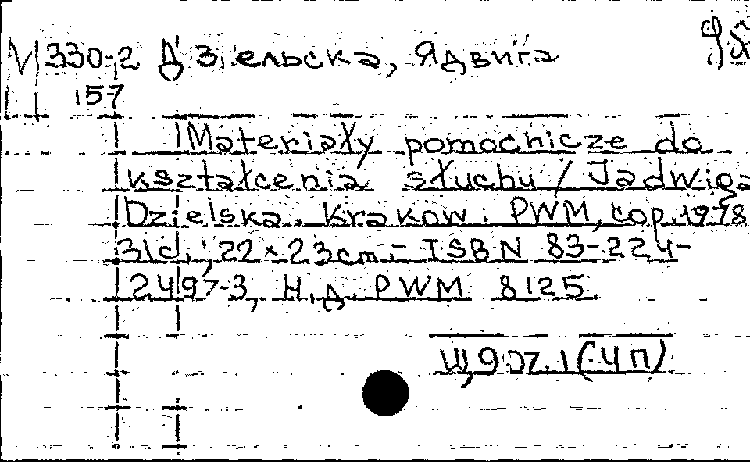 М 330-2 Дзельска, Ядвига
157
Materiały pomocnicze do
kształcenia słuchu / Jadwiga
Dzielska. Kraków: PWM, cop. 1978
31 с.; 22×23 cm. - ISBN 83-224-
2497-3, Н.д. PWM 8125
Щ907.1(4П)